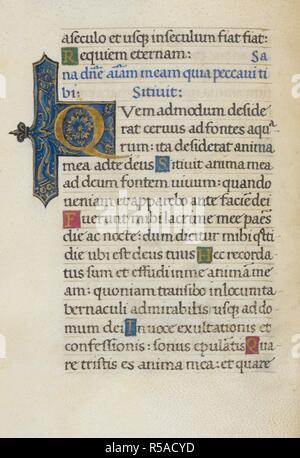 aseculo et usq; inseculum fiat fiat:
Requiem eternam: Sa
na dñe aiam meam quia peccavi ti
bi: Sitivit:
Quem admodum deside
rat cervus ad fontes aqua
rum: ita desiderat anima
mea ad te deus Sitivit anima mea
ad deum fontem vivum: quando
veniam et apparebo ante faciē dei
Fuerunt mihi lacrime mee panes
die ac nocte: dum dicitur mihi q̄tti
die ubi est deus tuus Hec recorda
tus sum et effudi in me animā me
am: quoniam transibo in locum ta
bernaculi admirabilis usq; ad do
mum dei In voce exultationis et
confessionis: sonus epulātis Qua
re tristis es anima mea: et quare
alamy
Image ID: R5ACYD
www.alamy.com